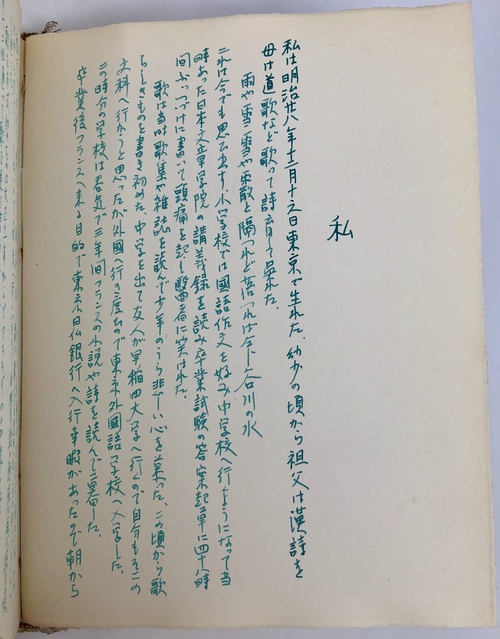 私
私は明治廿八年十二月十五日東京で生れた、幼少の頃から祖父は漢詩を
母は道歌など歌って詩育して呉れた、
雨や雪雪や霰と隔つれど落つれば仝じ谷川の水
これは今でも思ひ出す、小学校では國語作文を好み中学校へ行くようになって当
時あった日本文章学院の講義録を読み卒業試験の答案起草に四十八時
間ぶっつづけに書って頭痛を起し醫者に笑はれた、
歌は当時歌集や雑誌を読んで少年のうら悲しい心を慕った、この頃から歌
らしきものを書き初めた、中学を出て友人が早稲田大学へ行くので自分もそこの
文科へ行かうと思ったが外國へ行き度いので東京外國語学校へ入学した、
この時分の学校は呑気で三年間フランスの小説や詩を読んで暮した、
卒業後フランスへ来る目的で東京日仏銀行へ入行幸暇があったので朝から